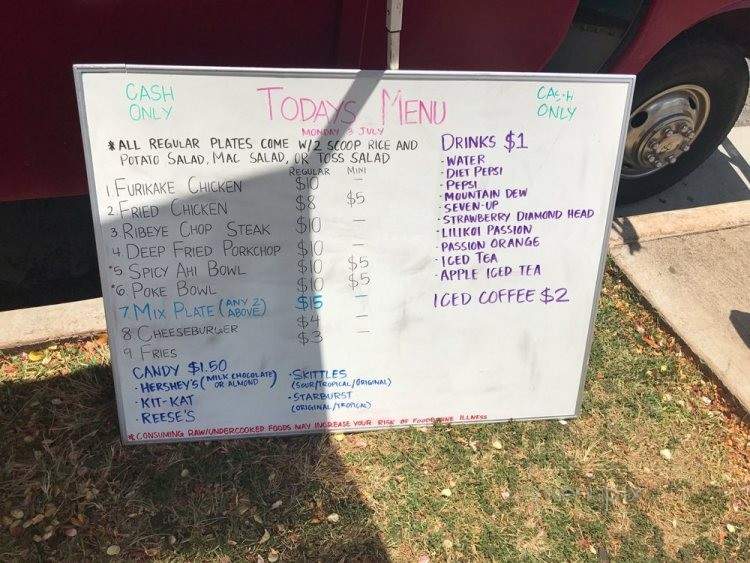 CASH ONLY
TODAYS MENU
CASH ONLY
MONDAY 3 JULY
*ALL REGULAR PLATES COME W/2 SCOOP RICE AND
POTATO SALAD, MAC SALAD, OR TOSS SALAD
REGULAR MINI
1 FURIKAKE CHICKEN $10 —
2 FRIED CHICKEN $8 $5
3 RIBEYE CHOP STEAK $10 —
4 DEEP FRIED PORKCHOP $10 —
*5 SPICY AHI BOWL $10 $5
*6 POKE BOWL $10 $5
7 MIX PLATE (ANY 2 ABOVE) $15 —
8 CHEESEBURGER $4 —
9 FRIES $3 —
CANDY $1.50
· HERSHEY'S (MILK CHOCOLATE OR ALMOND)
· KIT-KAT
· REESE'S
· SKITTLES
(SOUR/TROPICAL/ORIGINAL)
· STARBURST
(ORIGINAL/TROPICAL)
DRINKS $1
· WATER
· DIET PEPSI
· PEPSI
· MOUNTAIN DEW
· SEVEN-UP
· STRAWBERRY DIAMOND HEAD
· LILIKOI PASSION
· PASSION ORANGE
· ICED TEA
· APPLE ICED TEA
ICED COFFEE $2
*CONSUMING RAW/UNDERCOOKED FOODS MAY INCREASE YOUR RISK OF FOODBORNE ILLNESS